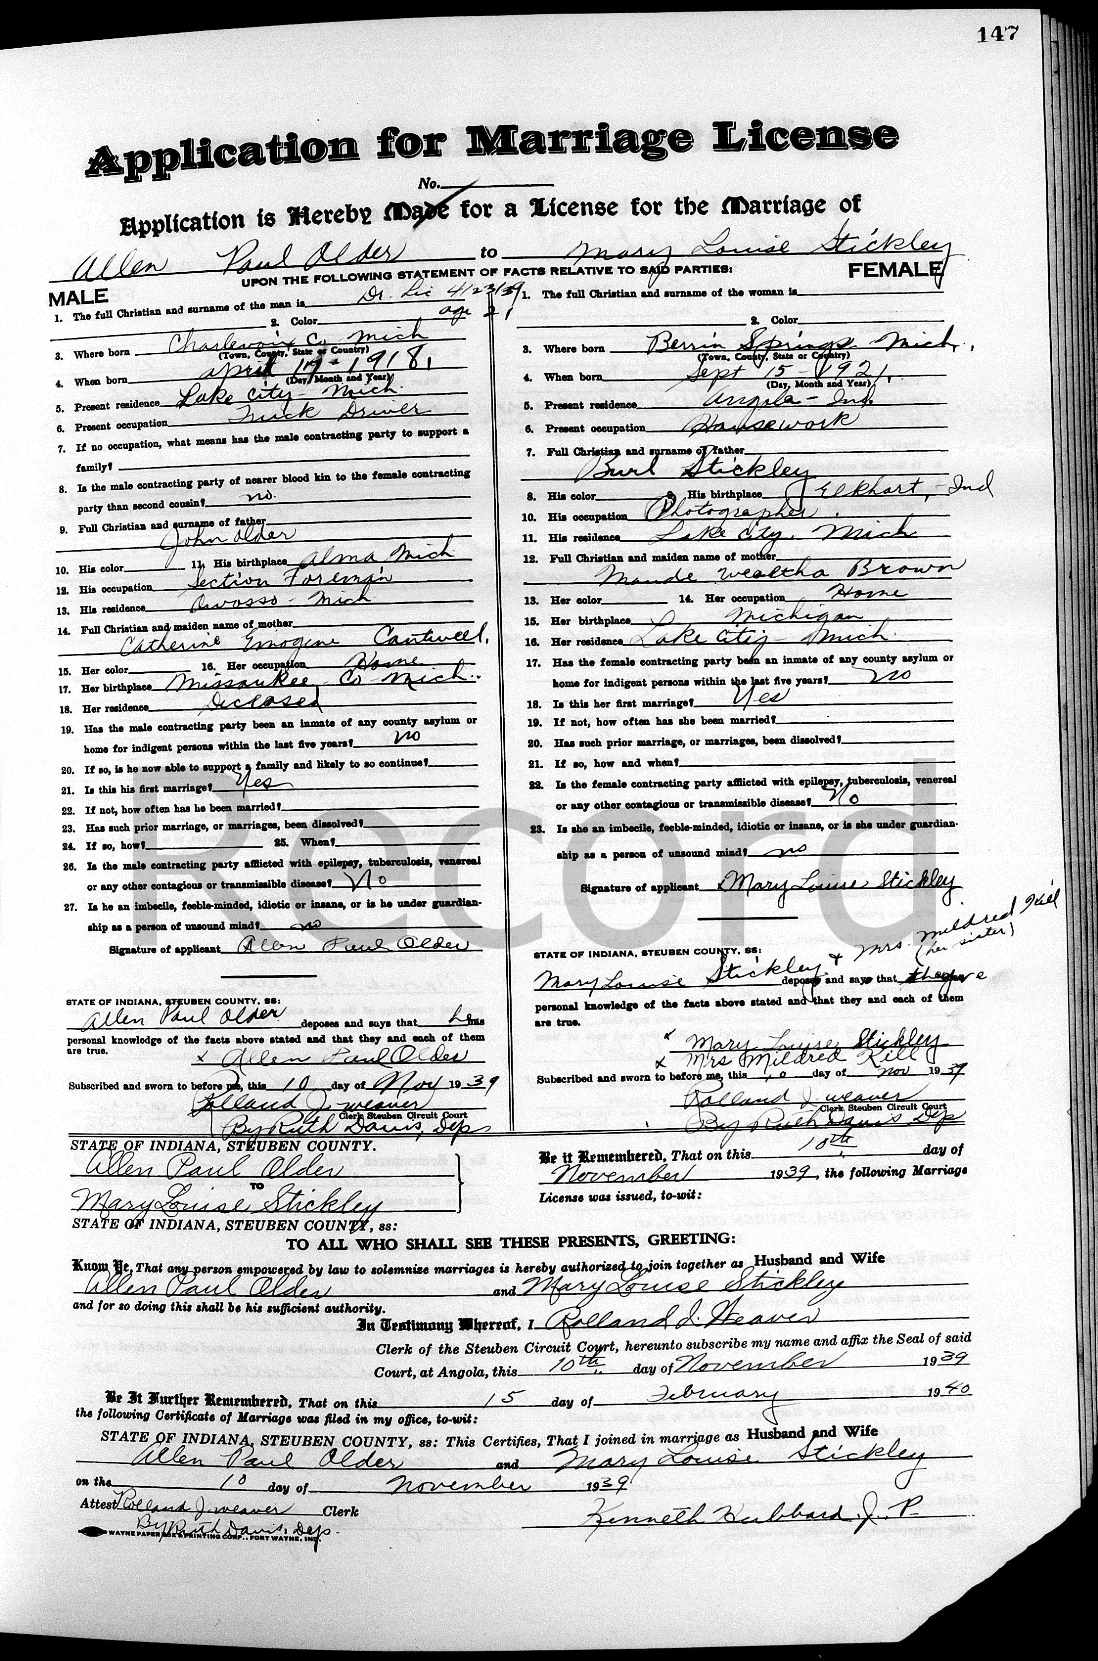 147
Application for Marriage License
No.
Application is Hereby Made for a License for the Marriage of
Allen Paul Older to Mary Louise Stickley
UPON THE FOLLOWING STATEMENT OF FACTS RELATIVE TO SAID PARTIES:
MALE
1. The full Christian and surname of the man is Dr. Lic 4/23/39
age 21
2. Color
3. Where born Charlevoix Co Mich
(Town, County, State or Country)
4. When born april 19 - 1918.
(Day, Month and Year)
5. Present residence Lake City - Mich.
6. Present occupation Truck Driver
7. If no occupation, what means has the male contracting party to support a
family?
8. Is the male contracting party of nearer blood kin to the female contracting
party than second cousin? no.
9. Full Christian and surname of father
John Older
10. His color 11. His birthplace Alma Mich
12. His occupation Section Foreman
13. His residence Owosso - Mich
14. Full Christian and maiden name of mother
Catherine Emogene Cantwell.
15. Her color 16. Her occupation Home
17. Her birthplace Missaukee Co Mich.
18. Her residence Deceased
19. Has the male contracting party been an inmate of any county asylum or
home for indigent persons within the last five years? no
20. If so, is he now able to support a family and likely to so continue?
21. Is this his first marriage? Yes
22. If not, how often has he been married?
23. Has such prior marriage, or marriages, been dissolved?
24. If so, how? 25. When?
26. Is the male contracting party afflicted with epilepsy, tuberculosis, venereal
or any other contagious or transmissible disease? No
27. Is he an imbecile, feeble-minded, idiotic or insane, or is he under guardian-
ship as a person of unsound mind? no
Signature of applicant Allen Paul Older
STATE OF INDIANA, STEUBEN COUNTY, ss:
Allen Paul Older deposes and says that he has
personal knowledge of the facts above stated and that they and each of them
are true.
x Allen Paul Older
Subscribed and sworn to before me, this 10 day of Nov 1939
Rolland J. Weaver
Clerk Steuben Circuit Court
By Ruth Davis, Dep
FEMALE
1. The full Christian and surname of the woman is
2. Color
3. Where born Berrin Springs Mich.
(Town, County, State or Country)
4. When born Sept 15 - 1921.
(Day, Month and Year)
5. Present residence Angola - Ind.
6. Present occupation Housework
7. Full Christian and surname of father
Burl Stickley
8. His color 9. His birthplace Elkhart, - Ind
10. His occupation Photographer
11. His residence Lake City. Mich
12. Full Christian and maiden name of mother
Maude Wealtha Brown
13. Her color 14. Her occupation Home
15. Her birthplace Michigan
16. Her residence Lake City - Mich.
17. Has the female contracting party been an inmate of any county asylum or
home for indigent persons within the last five years? no
18. Is this her first marriage? Yes
19. If not, how often has she been married?
20. Has such prior marriage, or marriages, been dissolved?
21. If so, how and when?
22. Is the female contracting party afflicted with epilepsy, tuberculosis, venereal
or any other contagious or transmissible disease? No
23. Is she an imbecile, feeble-minded, idiotic or insane, or is she under guardian-
ship as a person of unsound mind? no
Signature of applicant Mary Louise Stickley
STATE OF INDIANA, STEUBEN COUNTY, ss:
Mary Louise Stickley & Mrs. Mildred Kill
(her sister)
depose and say that they have
personal knowledge of the facts above stated and that they and each of them
are true.
x Mary Louise Stickley
x Mrs Mildred Kill
Subscribed and sworn to before me, this 10 day of Nov 1939
Rolland J. Weaver
Clerk Steuben Circuit Court
By Ruth Davis Dep
STATE OF INDIANA, STEUBEN COUNTY.
Allen Paul Older
TO
Mary Louise Stickley
Be it Remembered, That on this 10th day of
November 1939, the following Marriage
License was issued, to-wit:
STATE OF INDIANA, STEUBEN COUNTY, ss:
TO ALL WHO SHALL SEE THESE PRESENTS, GREETING:
Know Ye, That any person empowered by law to solemnize marriages is hereby authorized to join together as Husband and Wife
Allen Paul Older and Mary Louise Stickley
and for so doing this shall be his sufficient authority.
In Testimony Whereof, I Rolland J. Weaver
Clerk of the Steuben Circuit Court, hereunto subscribe my name and affix the Seal of said
Court, at Angola, this 10th day of November 1939
Be It Further Remembered, That on this 15 day of February 1940
the following Certificate of Marriage was filed in my office, to-wit:
STATE OF INDIANA, STEUBEN COUNTY, ss: This Certifies, That I joined in marriage as Husband and Wife
Allen Paul Older and Mary Louise Stickley
on the 10 day of November 1939
Attest Rolland J. Weaver Clerk
Kenneth Hubbard J. P.
By Ruth Davis, Dep.
Record